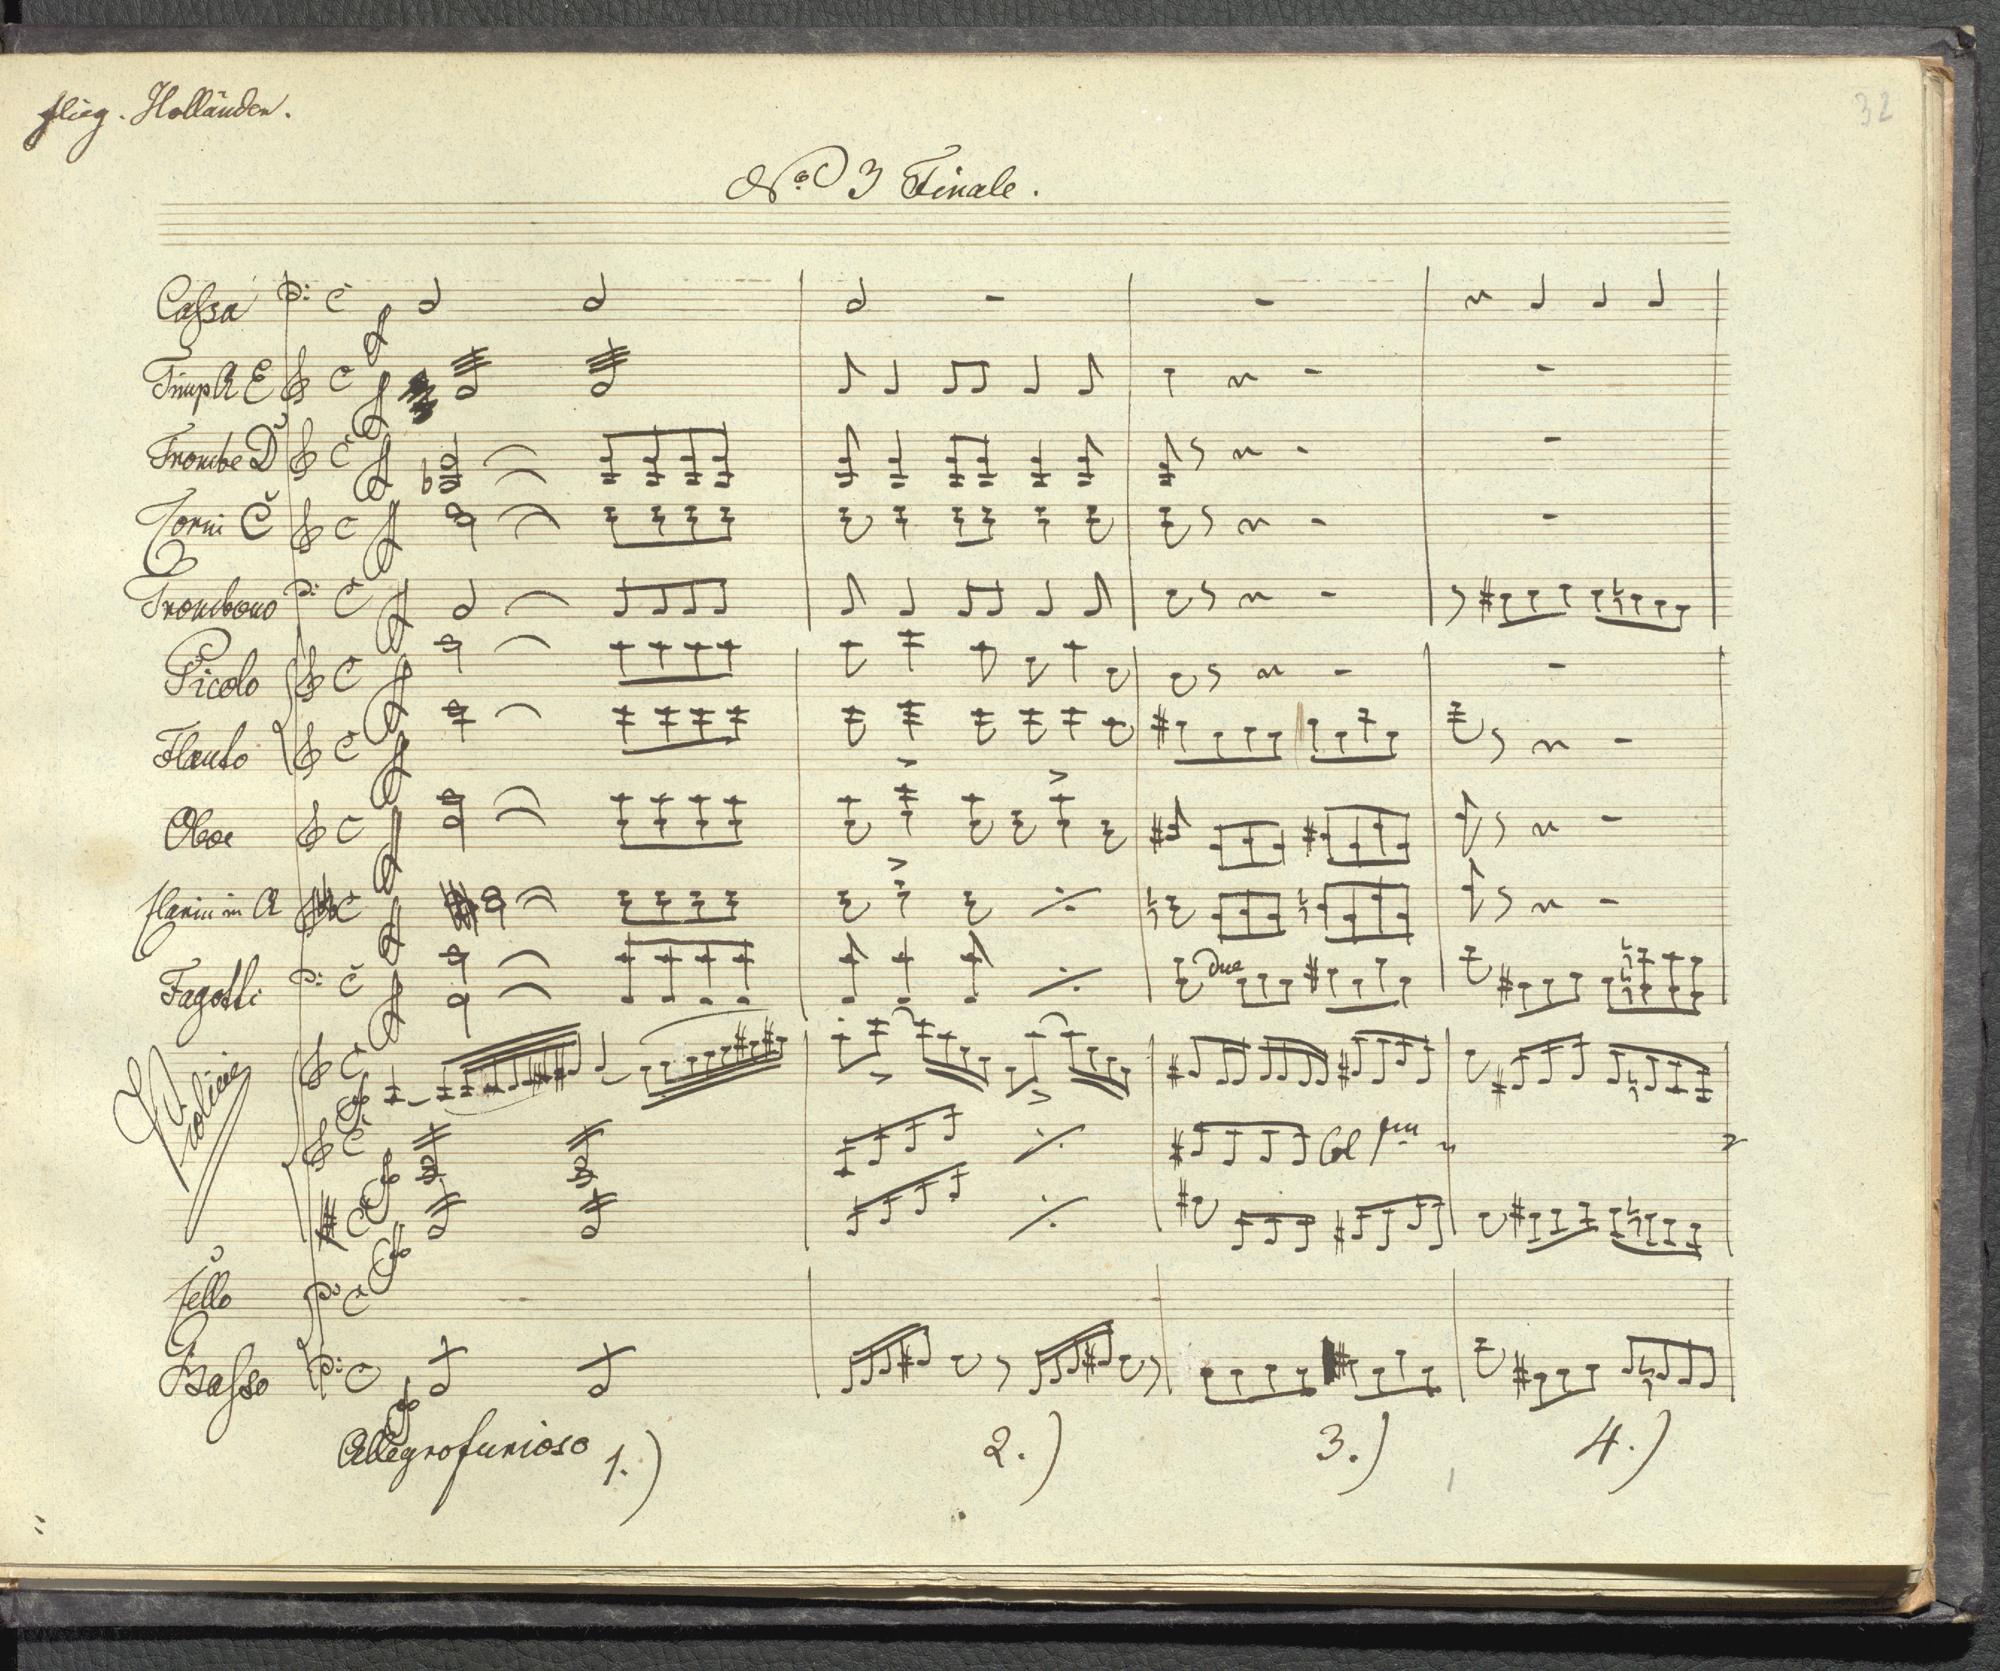 flieg. Holländer.
32
No 3 Finale.
Cassa
Timp A E
Trombe D
Corni C
Trombono
Picolo
Flauto
Oboe
Clarin in A
Fagotti
due
Violini
Col pmo
Cello
Basso
Allegro furioso 1.) 2.) 3.) 4.)